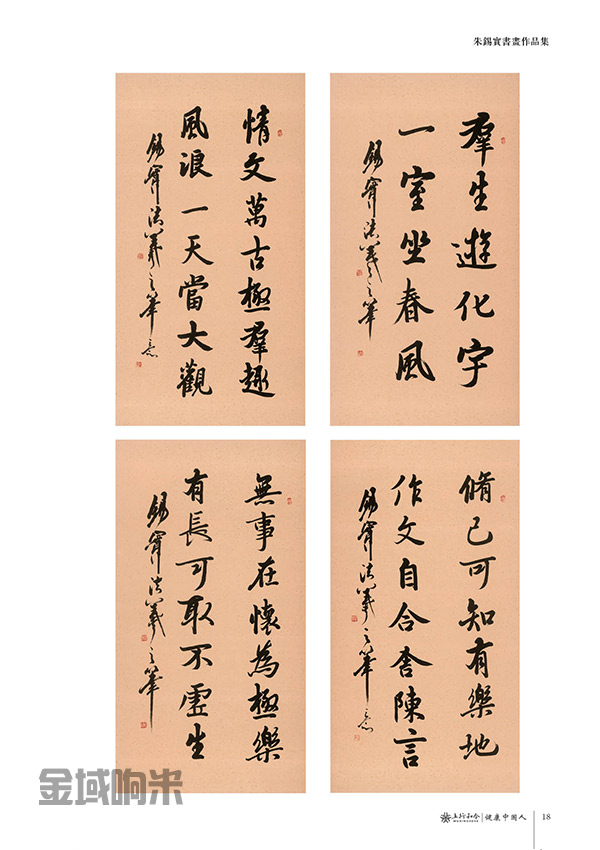 朱錫實書畫作品集
羣生遊化宇
一室坐春風
錫實法羲之筆
情文萬古極羣趣
風浪一天當大觀
錫實法羲之筆意
脩己可知有樂地
作文自合舍陳言
錫實法羲之筆意
無事在懷為極樂
有長可取不虛生
錫實法羲之筆
金域响米
五行和合
健康中国人
18